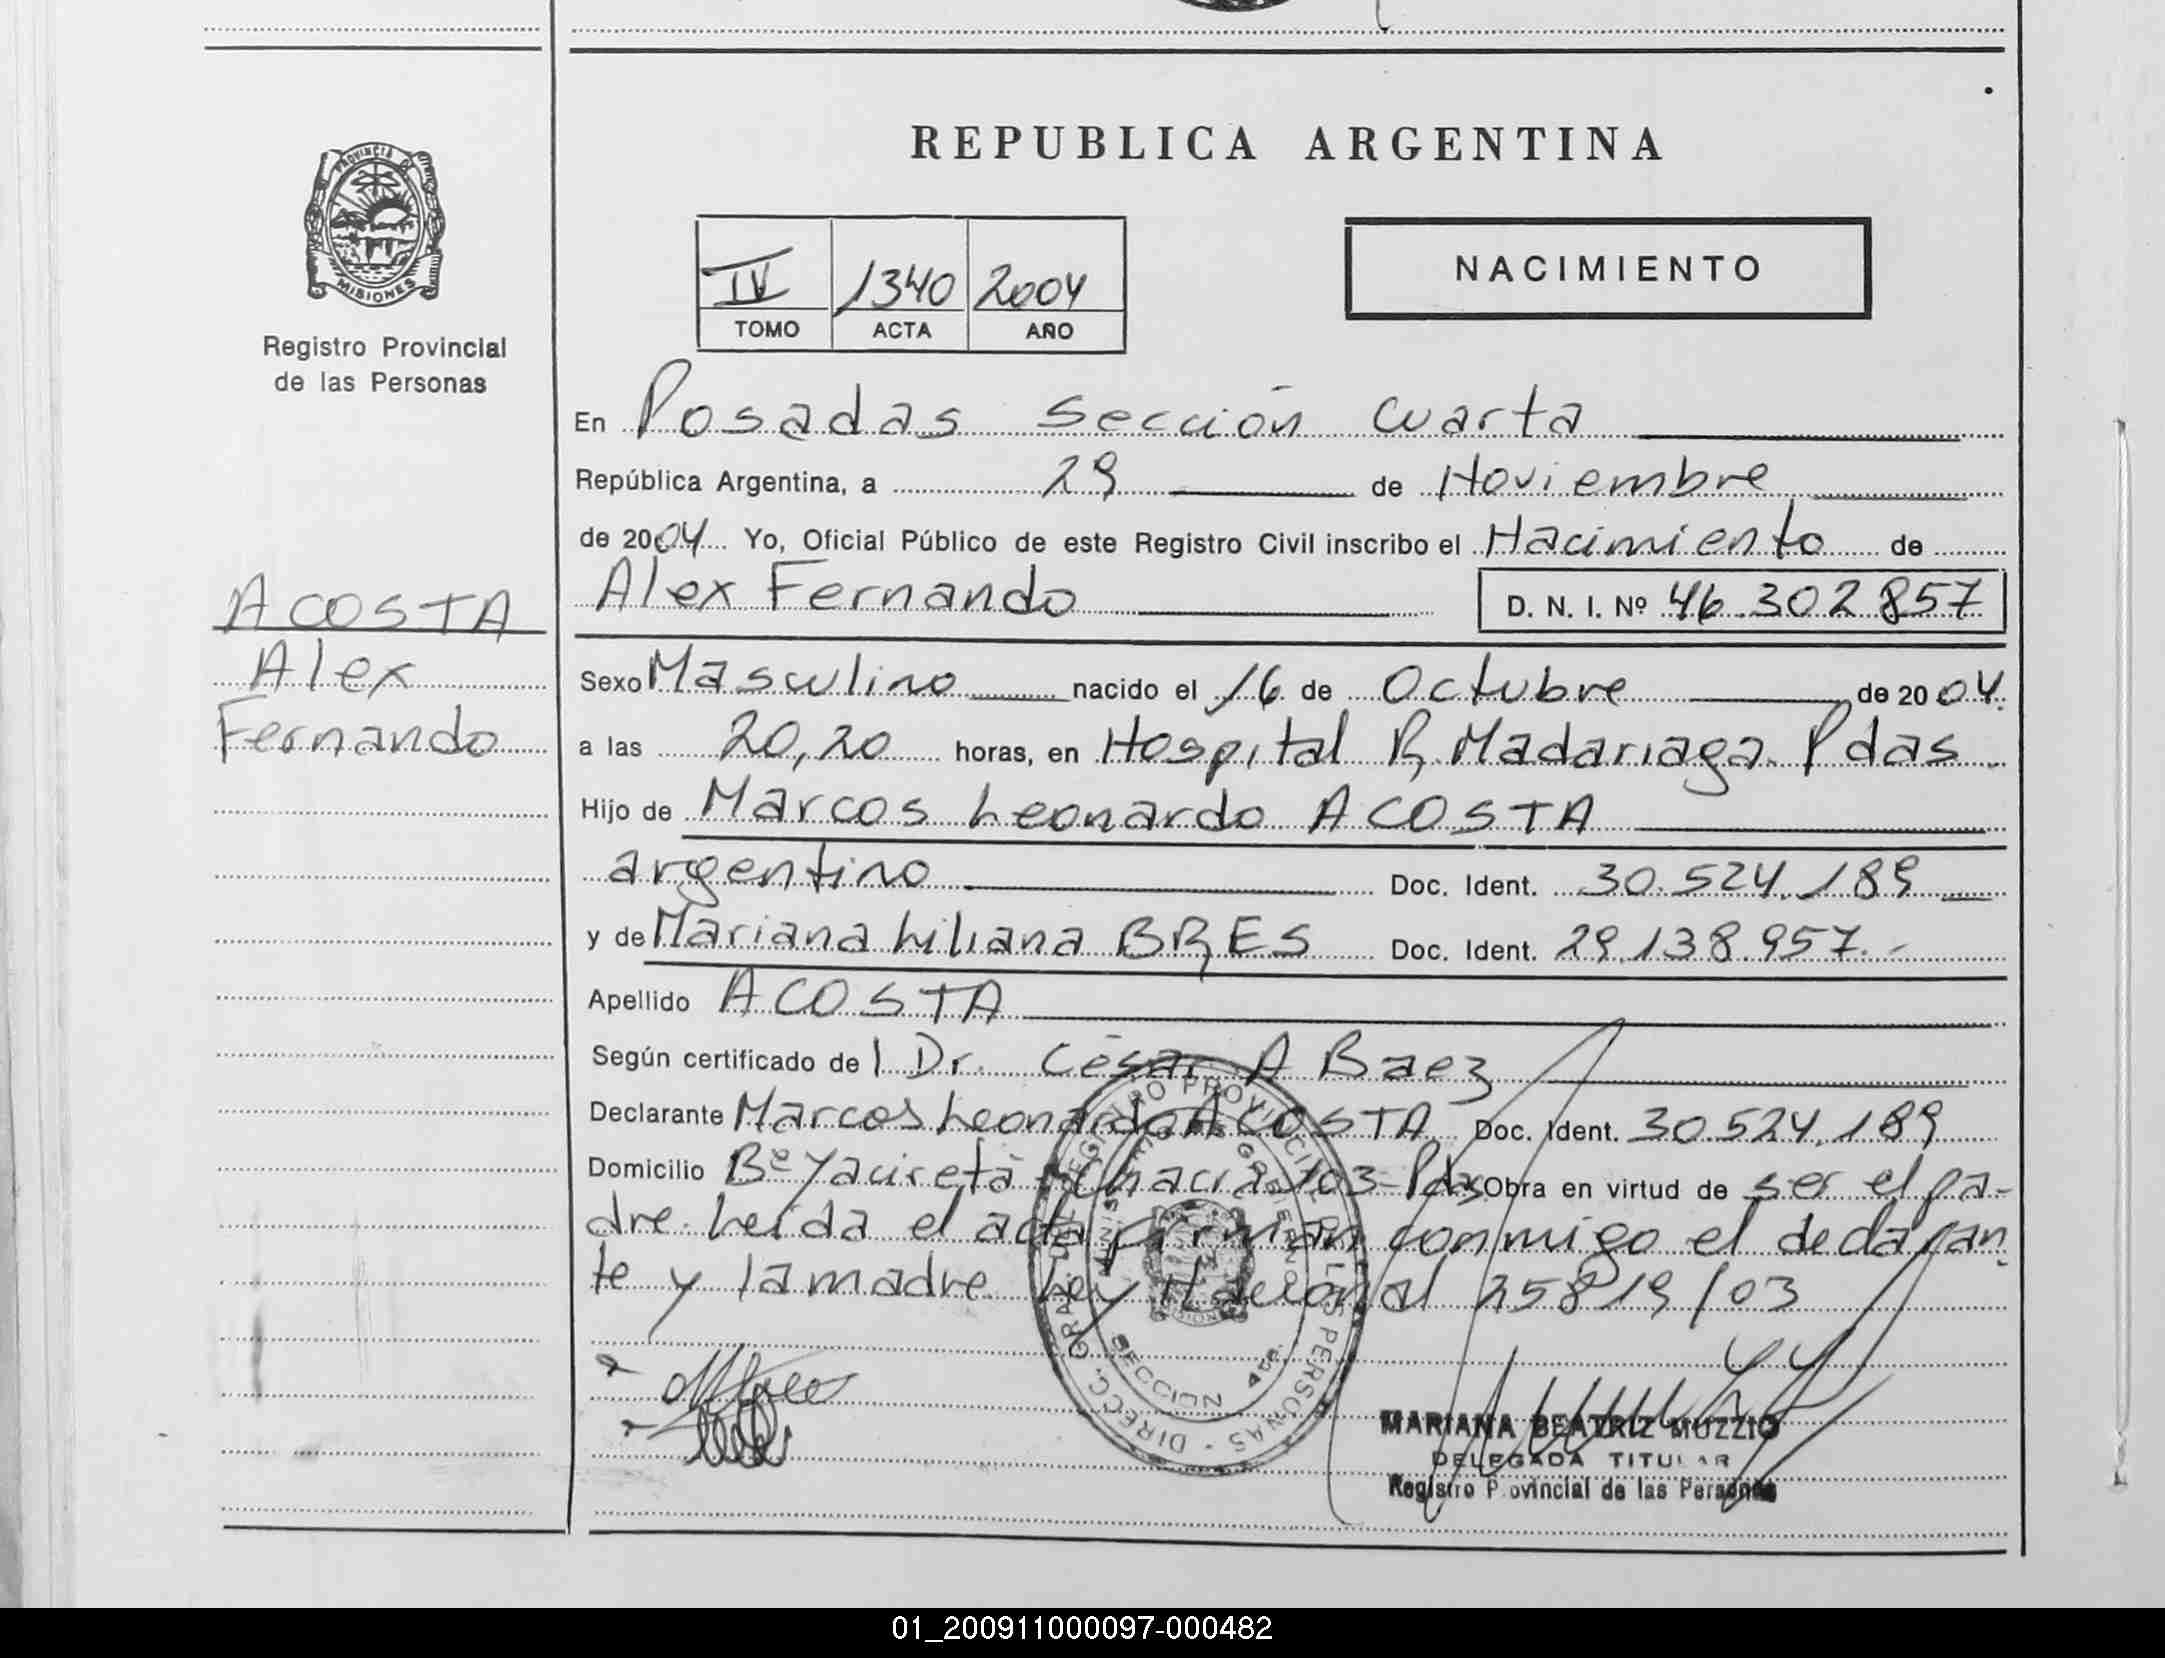 REPUBLICA ARGENTINA
PROVINCIA DE
MISIONES
Registro Provincial
de las Personas
IV 1340 2004
TOMO ACTA AÑO
NACIMIENTO
En Posadas Sección Cuarta
República Argentina, a 29 de Noviembre
de 2004 Yo, Oficial Público de este Registro Civil inscribo el Nacimiento de
Alex Fernando D. N. I. Nº 46.302857
ACOSTA
Alex
Fernando
Sexo Masculino nacido el 16 de Octubre de 2004.
a las 20,20 horas, en Hospital R. Madariaga. Pdas.
Hijo de Marcos Leonardo ACOSTA
argentino Doc. Ident. 30.524.189
y de Mariana Liliana BRES Doc. Ident. 29.138.957.-
Apellido ACOSTA
Según certificado de l Dr. César A Baez
Declarante Marcos Leonardo ACOSTA Doc. Ident. 30524.189
Domicilio Bº Yaciretá - Chacra 103-Pdas Obra en virtud de ser el pa-
dre. Leída el acta firman conmigo el declaran
te y la madre. Ley Nacional 25819/03
DIRECC. GRAL. DEL REGISTRO PROVINCIAL DE LAS PERSONAS
MINISTERIO DE GOBIERNO
SECCION 4ta.
MARIANA BEATRIZ MUZZIO
DELEGADA TITULAR
Registro Provincial de las Personas
01_200911000097-000482